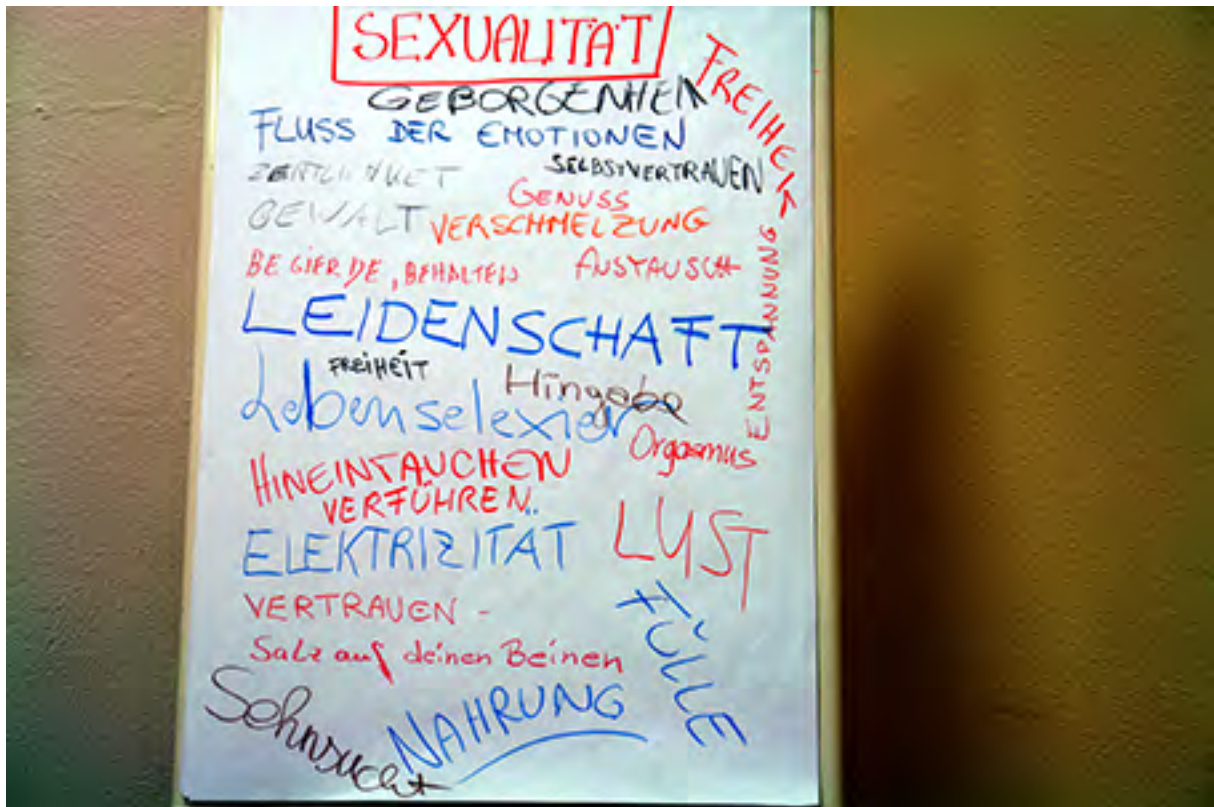 SEXUALITÄT
FREIHEIT
GEBORGENHEIT
FLUSS DER EMOTIONEN
ZÄRTLICHKEIT
SELBSTVERTRAUEN
GENUSS
GEWALT
VERSCHMELZUNG
ENTSPANNUNG
BEGIERDE, BEHALTEN
AUSTAUSCH
LEIDENSCHAFT
FREIHEIT
Hingabe
Lebenselexier
Orgasmus
HINEINTAUCHEN
VERFÜHREN
ELEKTRIZITÄT
LUST
VERTRAUEN -
FÜLLE
Salz auf deinen Beinen
Sehnsucht
NAHRUNG